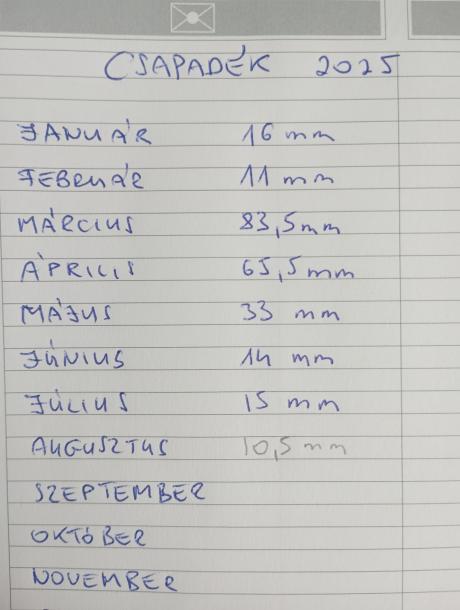 CSAPADÉK 2025
JANUÁR 16 mm
FEBRUÁR 11 mm
MÁRCIUS 83,5 mm
ÁPRILIS 65,5 mm
MÁJUS 33 mm
JÚNIUS 14 mm
JÚLIUS 15 mm
AUGUSZTUS 10,5 mm
SZEPTEMBER
OKTÓBER
NOVEMBER